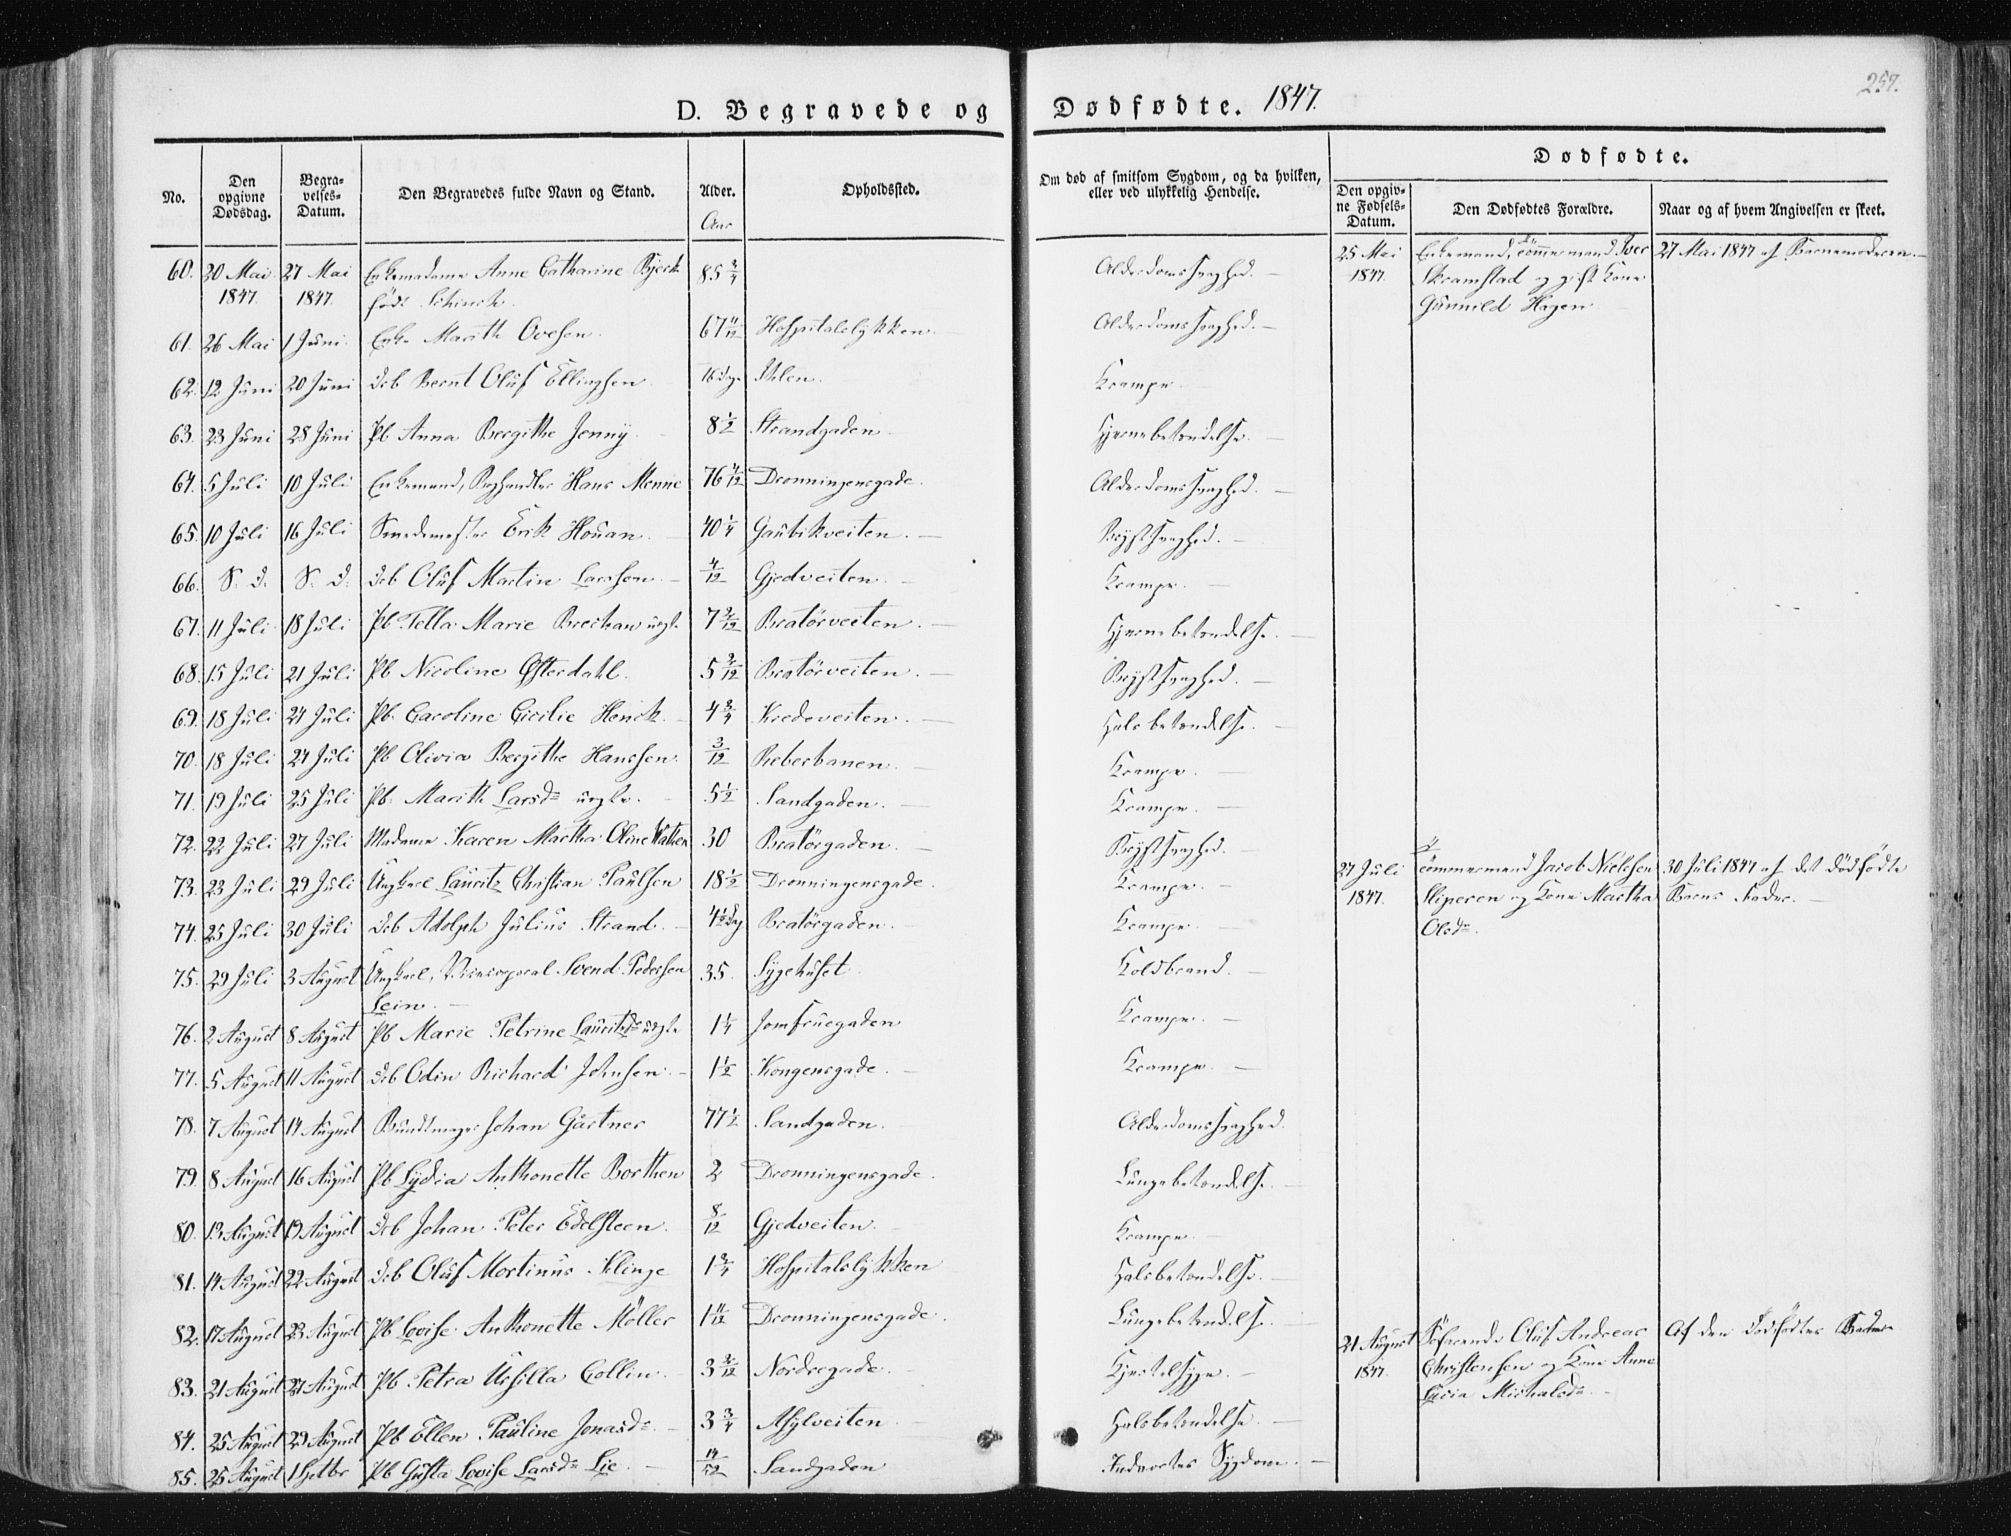 257.
D. Begravede og Dødfødte. 1847.
No. | Den opgivne Dødsdag. | Begravelses-Datum. | Den Begravedes fulde Navn og Stand. | Alder. Aar | Opholdssted. | Om død af smitsom Sygdom, og da hvilken, eller ved ulykkelig Hendelse. | Dødfødte. | Den opgivne Fødsels-Datum. | Den Dødfødtes Forældre. | Naar og af hvem Angivelsen er skeet.
60. 20 Mai 1847. 27 Mai 1847. Enkemadame Anne Catharine Bjerck född Schinck. 85 3/4 Alderdomssvaghed. 25 Mai 1847. Enkemand, Tömmermand Iver Skramstad og gift Kone Gunnild Hagen 27 Mai 1847 af Barnemoderen.
61. 26 Mai 1 Juni Enke Marith Ovesen. 67 11/12 Hospitalslykken. Alderdomssvaghed.
62. 12 Juni 20 Juni Drb Bernt Oluf Ellingsen 16 Dage Ihlen. Krampe.
63. 23 Juni 28 Juni Pb Anna Bergithe Jenny. 8 1/2 Strandgaden Hjernebetændelse.
64. 5 Juli 10 Juli Enkemand, Boghandler Hans Menne 76 4/12 Dronningensgade. Alderdomssvaghed.
65. 10 Juli 16 Juli Smedemester Erik Houan. 40 1/4 Gaubikveiten. Brystsvaghed.
66. S. D. S. D. Drb Oluf Martin Larssen. 4/12 Gjedveiten. Krampe.
67. 11 Juli 18 Juli Pb Tella Marie Brechan uegte 7 2/12 Bratörveiten. Hjernebetændelse.
68. 15 Juli 21 Juli Pb Nicoline Østerdahl. 5 2/12 Bratörveiten. Brystsvaghed.
69. 18 Juli 24 Juli Pb. Caroline Cicilie Henck. 4 3/4 Kredoveiten. Halsbetændelse.
70. 18 Juli 24 Juli Pb Olivia Bergithe Hanssen. 3/12 Reberbanen. Krampe.
71. 19 Juli 25 Juli Pb. Marith Larsdr uegte. 5 1/2 Sandgaden. Krampe.
72. 22 Juli 27 Juli Madame Karen Martha Oline Wathen 30 Bratörgaden. Brystsvaghed.
73. 23 Juli 29 Juli Ungkarl Lauritz Christian Paulsen 18 1/2 Dronningensgade. Krampe. 27 Juli 1847. Tömmermand Jacob Nielsen Sliperen og Kone Martha Olsdr. 30 Juli 1847 af det dödfödte Barns Fader.
74. 25 Juli 30 Juli Drb Adolph Julius Strand. 4 1/2 Dag Bratörgaden. Krampe.
75. 29 Juli 3 August Ungkarl, Vicecorporal Svend Pedersen Lein. 35. Sygehuset Koldbrand.
76. 2 August 8 August Pb Marie Petrine Lauritzdr uegte 1 1/4 Jomfruegaden Krampe.
77. 5 August 11 August Drb Odin Richard Johnsen. 1 1/2 Kongensgade. Krampe.
78. 7 August 14 August Bundtmager Johan Gärtner 77 1/2 Sandgaden. Alderdomssvaghed.
79. 8 August 16 August Pb Lydia Anthonette Borthen 2 Dronningensgade. Lungebetændelse.
80. 13 August 19 August Drb Johan Peter Edelsteen. 8/12 Gjedveiten. Krampe.
81. 14 August 22 August Drb Oluf Mortinus Klinge 1 3/4 Hospitalslykken Halsbetændelse.
82. 17 August 23 August Pb Lovise Anthonette Möller 1 11/12 Dronningensgade. Lungebetændelse. 21 August 1847. Söfarende Oluf Andreas Christensen og Kone Anne Lucia Michalsdr. Af den Dödfödtes Fader
83. 21 August 27 August Pb Petra Ursilla Collin. 3 2/12 Nordregade. Kjertelsyge.
84. 25 August 29 August Pb Ellen Pauline Jonasdr. 3 3/4 Asylveiten. Halsbetændelse.
85. 25 August 1 Septbr Pb Gusta Lovise Larsdr Lie. Sandgaden Indvortes Sygdom.